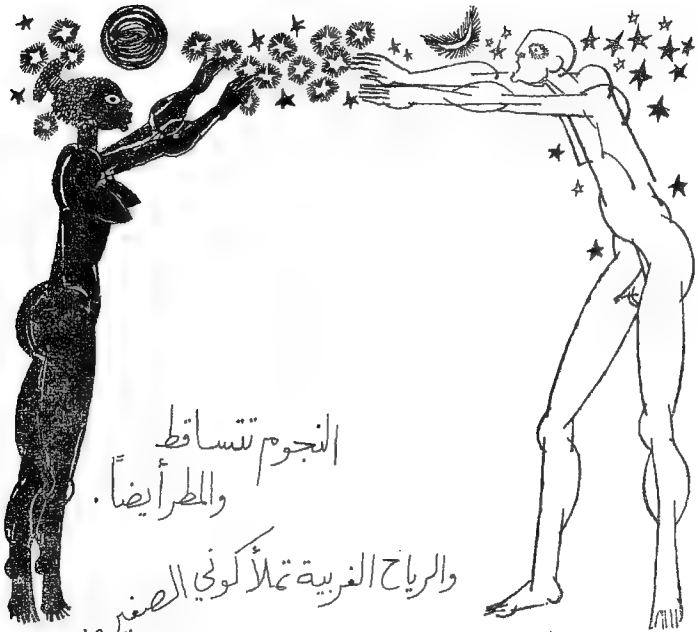 النجوم تتساقط
والمطر أيضاً .
والرياح الغربية تملأ كوني الصغير